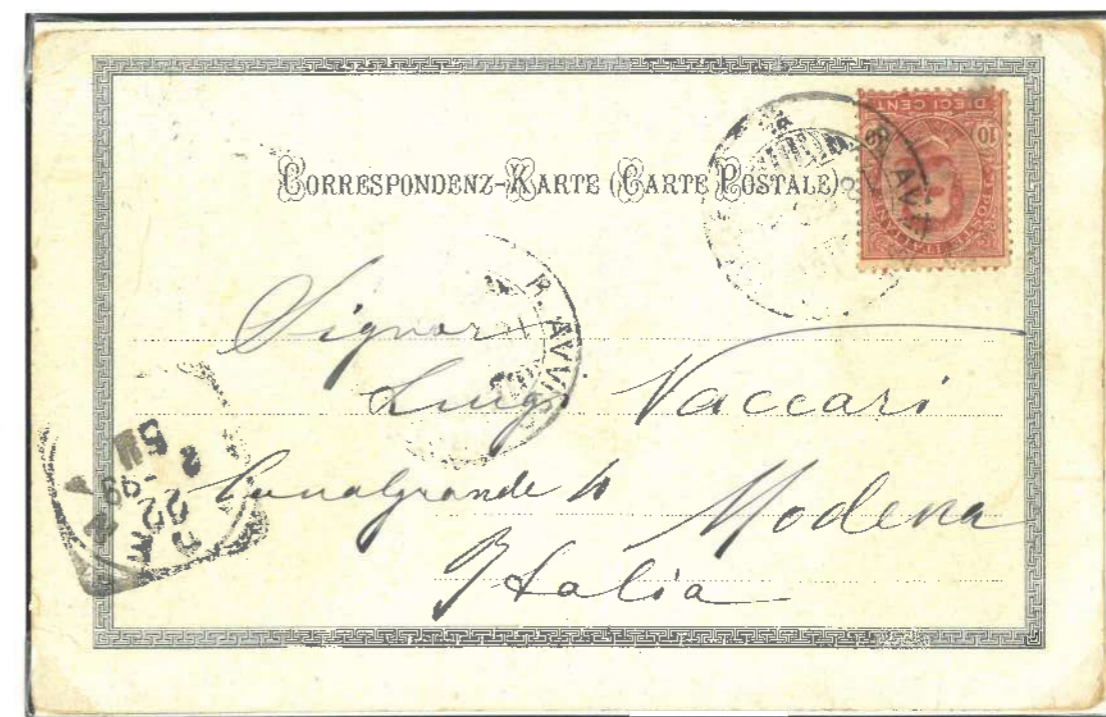 CORRESPONDENZ-KARTE (CARTE POSTALE)
DIECI CENT
10
POSTE ITALIANE
R. AVV
Signor
Luigi Vaccari
Canalgrande 4 Modena
Italia
22